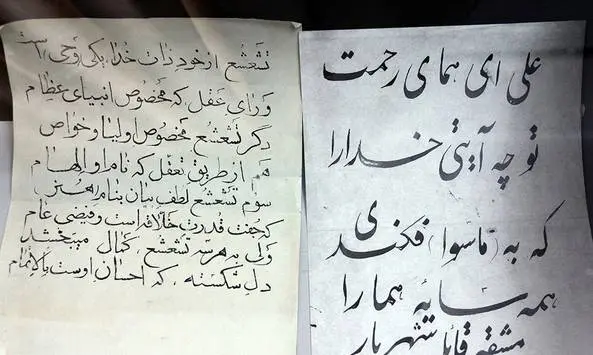 علی ای همای رحمت
تو چه آیتی خدا را
که به (ماسوا) فکندی
همه سایه هما را
شهریار
تشعشع از خود ذات خدا، یکی وحی است
ورای عقل که مخصوص انبیای عظام
دگر تشعشع مخصوص اولیا و خواص
هم از طریق تعقل که نام او الهام
سوم تشعشع لطف بیان بنام هنر
که جفت قدرت خلاقه است و فیضی عام
ولی به هر سه تشعشع، کمال میبخشد
دل شکسته، که احسان اوست بالاتمام